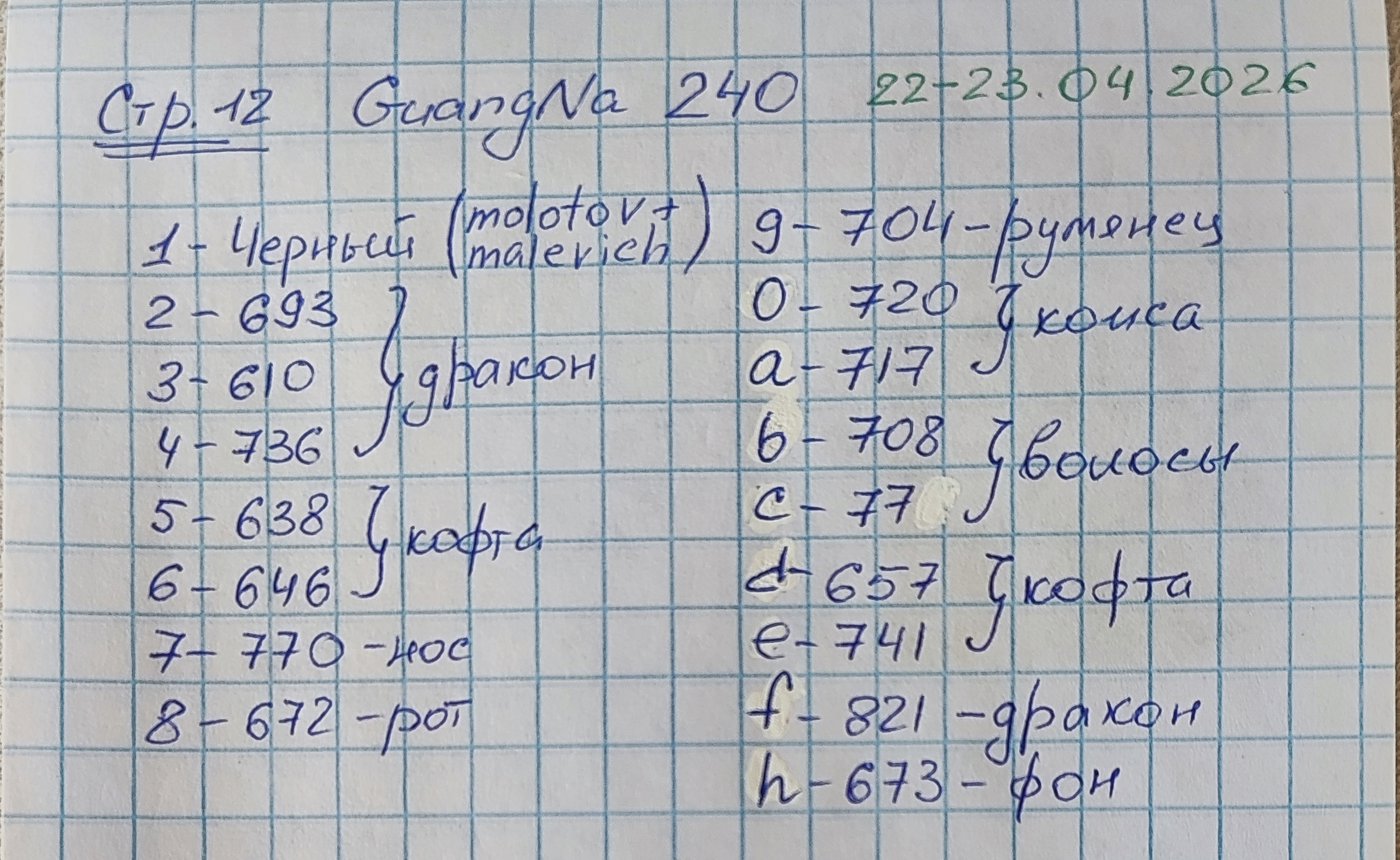 Стр. 12 GuangNa 240 22-23.04.2026
1 - Черный (molotov + malevich)
2 - 693
3 - 610
4 - 736
} дракон
5 - 638
6 - 646
} кофта
7 - 770 - нос
8 - 672 - рот
9 - 704 - румянец
0 - 720
a - 717
} коиса
b - 708
c - 77
} волосы
d - 657
e - 741
} кофта
f - 821 - дракон
h - 673 - фон